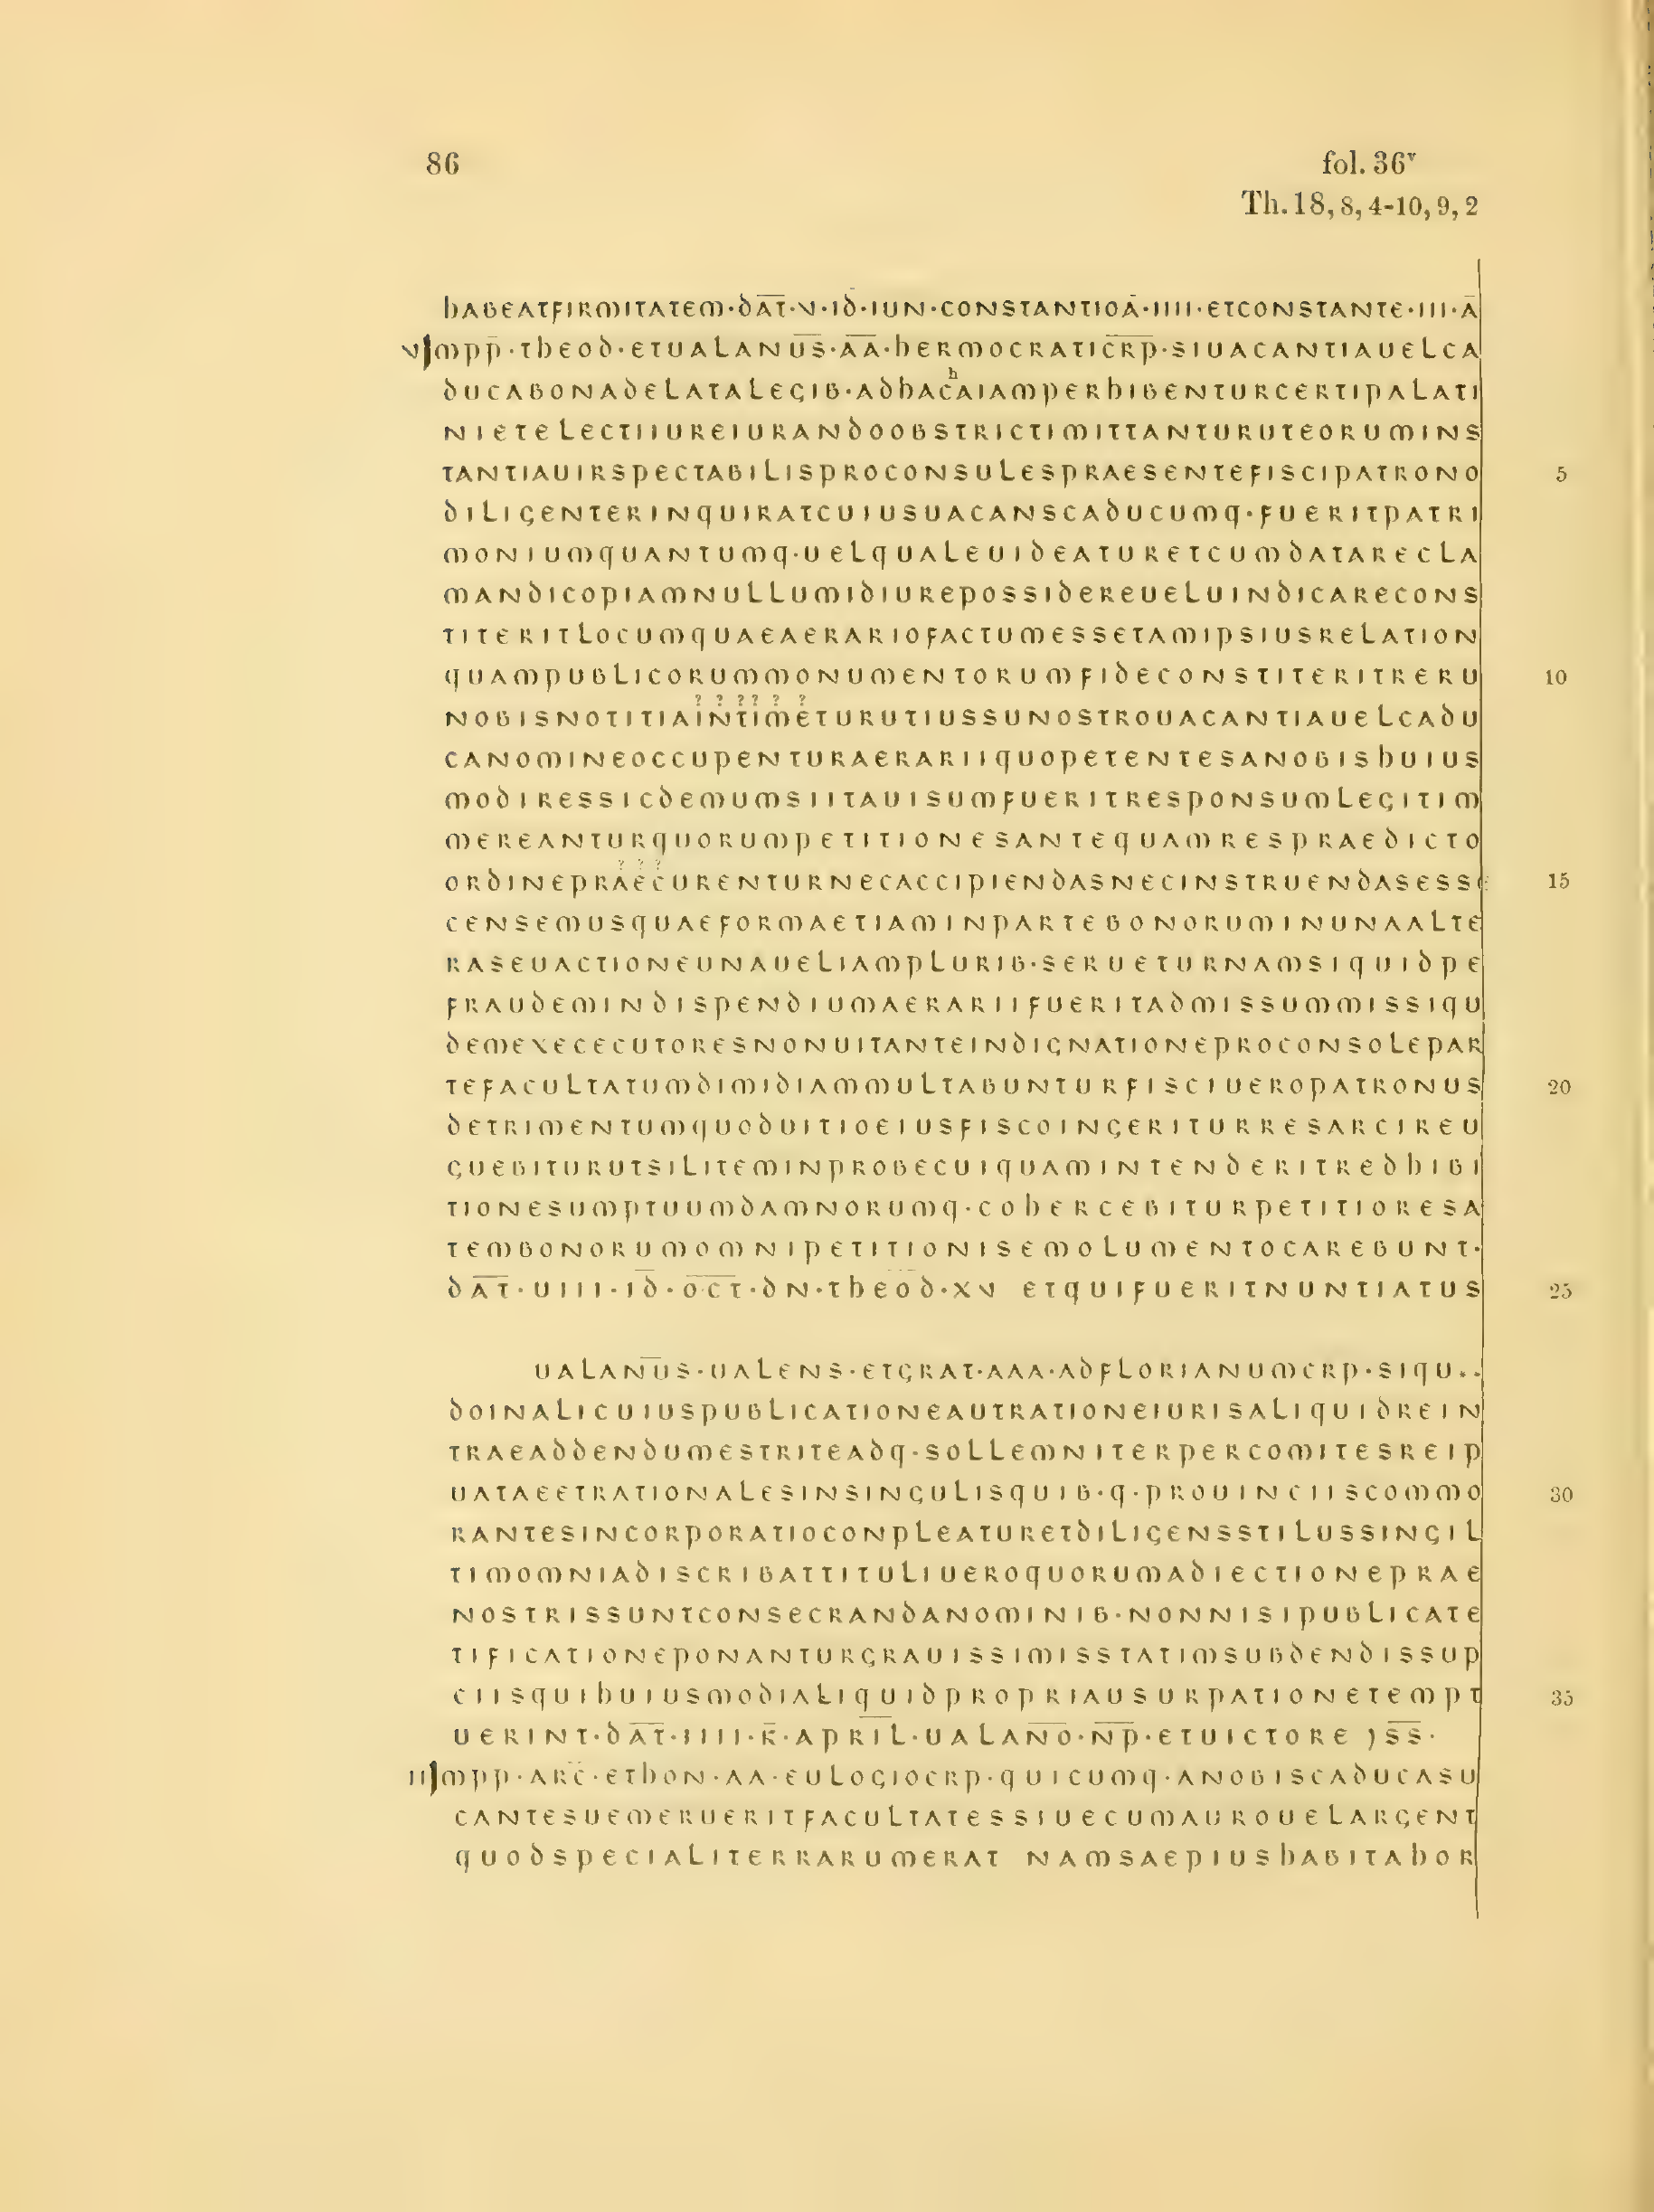 86 fol. 36ᵛ
Th. 18, 8, 4-10, 9, 2
HABEATFIRMITATEM·DA̅T̅·V·ID̅·IUN·CONSTANTIOA̅·IIII·ETCONSTANTE·III·A̅
V IMPP̅·THEOD̅·ETUALANU̅S·A̅A̅·HERMOCRATIC̅R̅P̅·SIUACANTIAUELCA
h
DUCABONADELATALEGIB·ADHACAIAMPERHIBENTURCERTIPALATI
NIETELECTIIUREIURANDOOBSTRICTIMITTANTURUTEORUMINS
TANTIAUIRSPECTABILISPROCONSULESPRAESENTEFISCIPATRONO 5
DILIGENTERINQUIRATCUIUSUACANSCADUCUMQ·FUERITPATRI
MONIUMQUANTUMQ·UELQUALEUIDEATURETCUMDATARECLA
MANDICOPIAMNULLUMIDIUREPOSSIDEREUELUINDICARECONS
TITERITLOCUMQUAEAERARIOFACTUMESSETAMIPSIUSRELATION
QUAMPUBLICORUMMONUMENTORUMFIDECONSTITERITRERU 10
? ? ? ? ? ?
NOBISNOTITIAINTIMETURUTIUSSUNOSTROUACANTIAUELCADU
CANOMINEOCCUPENTURAERARIIQUOPETENTESANOBISHUIUS
MODIRESSICDEMUMSIITAUISUMFUERITRESPONSUMLEGITIM
MEREANTURQUORUMPETITIONESANTEQUAMRESPRAEDICTO
? ? ?
ORDINEPRAECURENTURNECACCIPIENDASNECINSTRUENDASESSE 15
CENSEMUSQUAEFORMAETIAMINPARTEBONORUMINUNAALTE
RASEUACTIONEUNAUELIAMPLURIB·SERUETURNAMSIQUIDPE
FRAUDEMINDISPENDIUMAERARIIFUERITADMISSUMMISSIQU
DEMEXECECUTORESNONUITANTEINDIGNATIONEPROCONSOLEPAR
TEFACULTATUMDIMIDIAMMULTABUNTURFISCIUEROPATRONUS 20
DETRIMENTUMQUODUITIOEIUSFISCOINGERITURRESARCIREU
GUEBITURUTSILITEMINPROBECUIQUAMINTENDERITREDHIBI
TIONESUMPTUUMDAMNORUMQ·COHERCEBITURPETITIORESA
TEMBONORUMOMNIPETITIONISEMOLUMENTOCAREBUNT·
DA̅T̅·UIII·ID̅·O̅C̅T̅·DN·THEOD̅·XV ETQUIFUERITNUNTIATUS 25
UALANU̅S·UALENS·ETGRAT·AAA·ADFLORIANUMCRP·SIQU..
DOINALICUIUSPUBLICATIONEAUTRATIONEIURISALIQUIDREIN
TRAEADDENDUMESTRITEADQ·SOLLEMNITERPERCOMITESREIP
UATAEETRATIONALESINSINGULISQUIB·Q·PROUINCIISCOMMO 30
RANTESINCORPORATIOCONPLEATURETDILIGENSSTILUSSINGIL
TIMOMNIADISCRIBATTITULIUEROQUORUMADIECTIONEPRAE
NOSTRISSUNTCONSECRANDANOMINIB·NONNISIPUBLICATE
TIFICATIONEPONANTURGRAUISSIMISSTATIMSUBDENDISSUP
CIISQUIHUIUSMODIALIQUIDPROPRIAUSURPATIONETEMPT 35
UERINT·DA̅T̅·IIII·K̅·APRI̅L̅·UALANO̅·N̅P̅·ETUICTORE )S̅S̅·
II IMPP·ARC̅·ETHON·AA·EULOGIOCRP·QUICUMQ·ANOBISCADUCASU
CANTESUEMERUERITFACULTATESSIUECUMAUROUELARGENT
QUODSPECIALITERRARUMERAT NAMSAEPIUSHABITAHOR